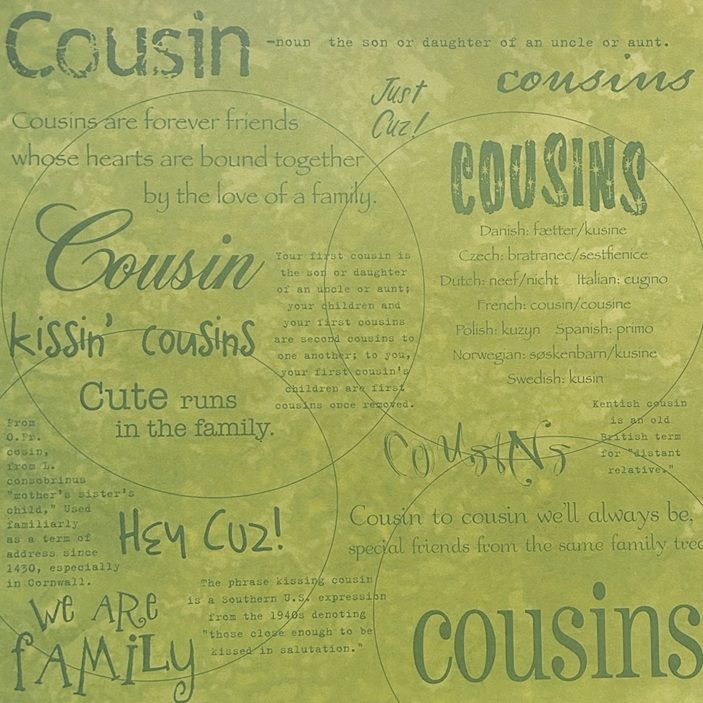 Cousin
-noun the son or daughter of an uncle or aunt.
cousins
Just
Cuz!
Cousins are forever friends
whose hearts are bound together
by the love of a family.
COUSINS
Danish: fætter/kusine
Czech: bratranec/sestfienice
Dutch: neef/nicht Italian: cugino
French: cousin/cousine
Polish: kuzyn Spanish: primo
Norwegian: søskenbarn/kusine
Swedish: kusin
Cousin
Your first cousin is
the son or daughter
of an uncle or aunt;
your children and
your first cousins
are second cousins to
one another; to you,
your first cousin's
children are first
cousins once removed.
kissin' cousins
Cute runs
in the family.
Kentish cousin
is an old
British term
for "distant
relative."
Cousins
From
O.Fr.
cosin,
from L.
consobrinus
"mother's sister's
child," Used
familiarly
as a term of
address since
1430, especially
in Cornwall.
Hey Cuz!
Cousin to cousin we'll always be,
special friends from the same family tree
The phrase kissing cousin
is a Southern U.S. expression
from the 1940s denoting
"those close enough to be
kissed in salutation."
We ARe
FAMiLy
cousins